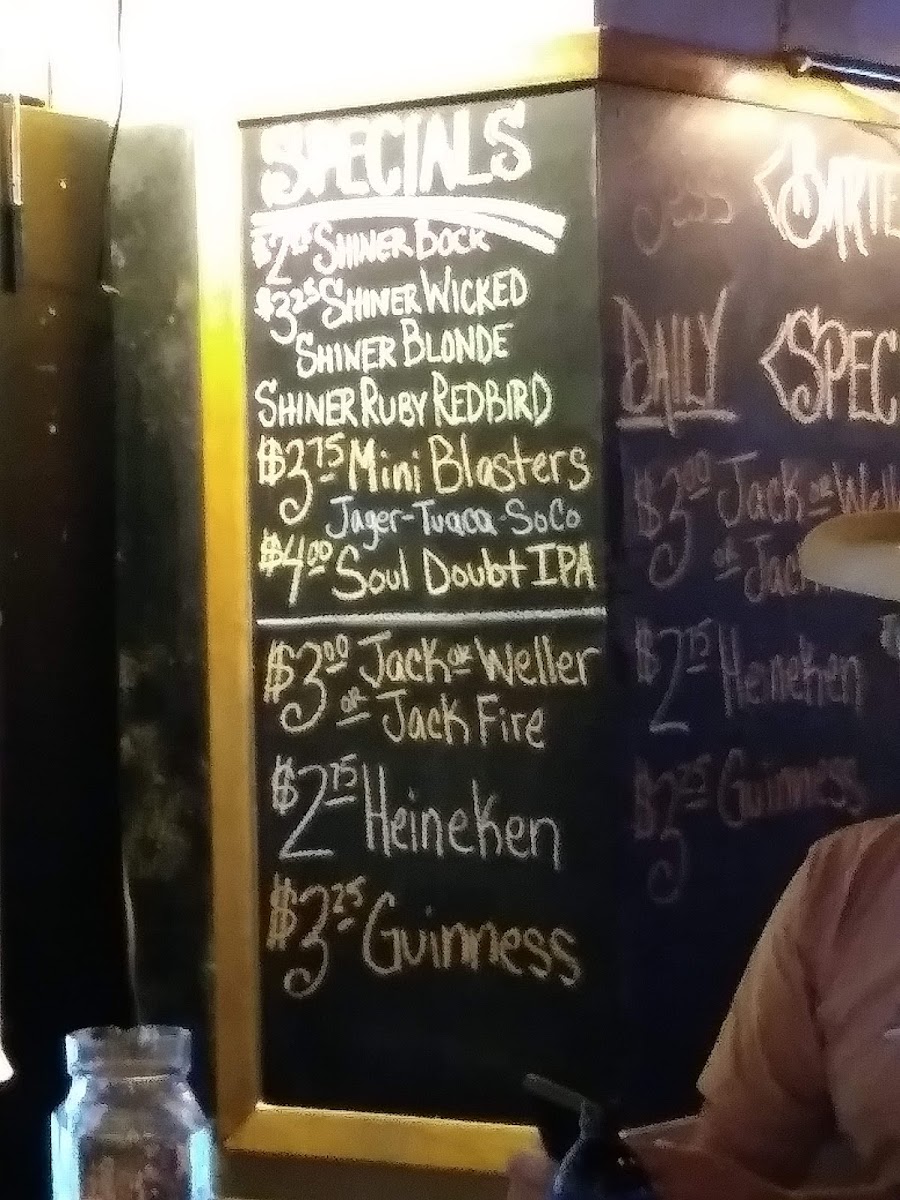 SPECIALS
SHINER BOCK
$3.25 SHINER WICKED
SHINER BLONDE
SHINER RUBY REDBIRD
$3.75 Mini Blasters
Jager-Tuaca-SoCo
$4.00 Soul Doubt IPA
$3.00 Jack OR Weller
OR Jack Fire
$2.75 Heineken
$3.25 Guinness
Jess
DAILY
$3.00 Jack OR
OR
$2.75 Heineken
$3.25 Guinness